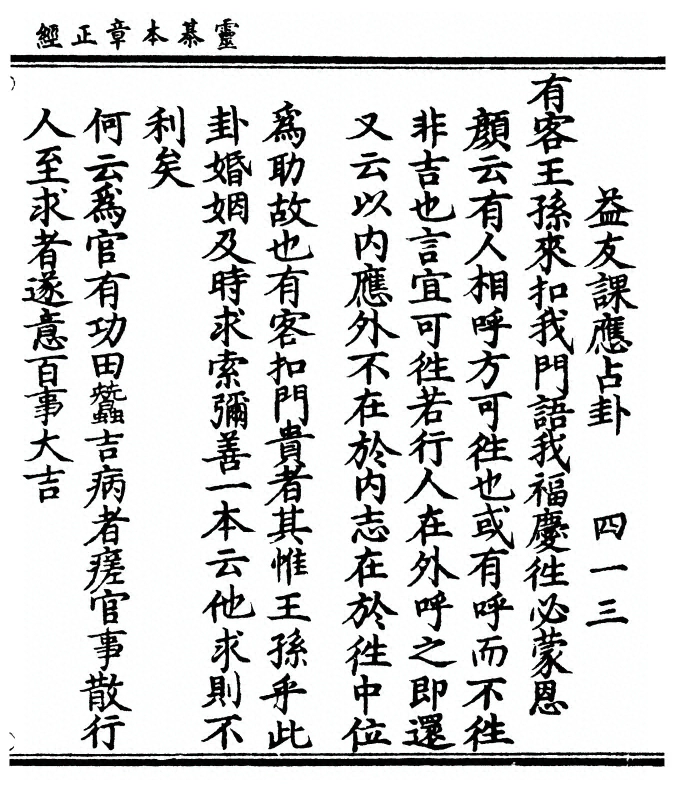 靈棊本章正經
益友課應占卦　四一三
有客王孫來扣我門語我福慶徃必蒙恩
顏云有人相呼方可徃也或有呼而不徃
非吉也言宜可徃若行人在外呼之即還
又云以内應外不在於内志在於徃中位
爲助故也有客扣門貴者其惟王孫乎此
卦婚姻及時求索彌善一本云他求則不
利矣
何云爲官有功田蠶吉病者瘥官事散行
人至求者遂意百事大吉